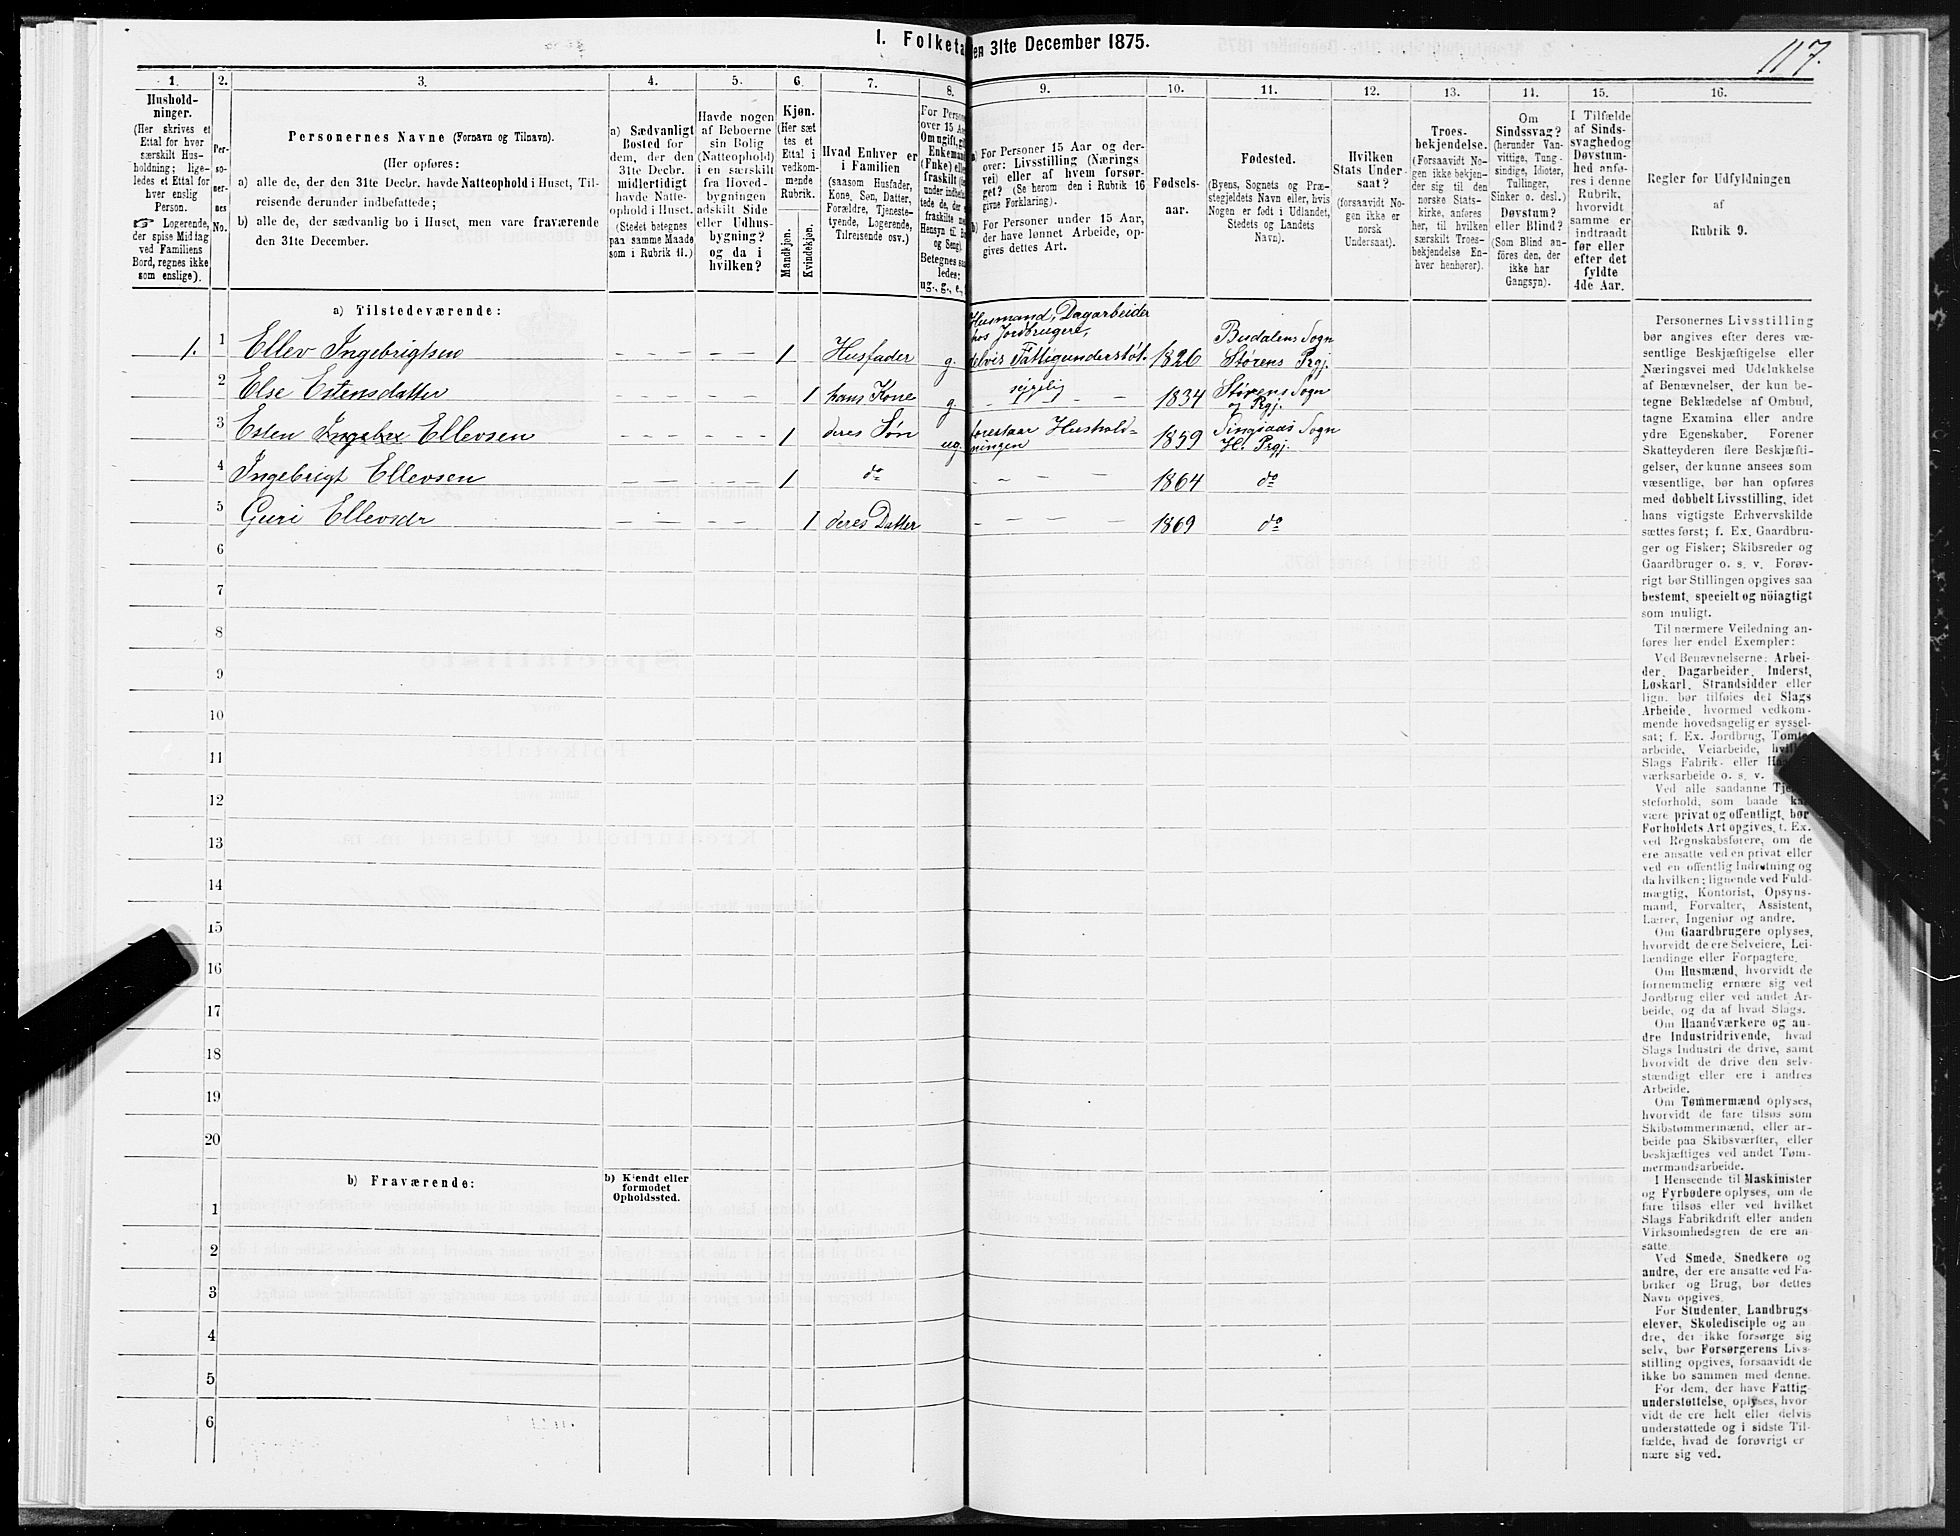 117.
I. Folketa
en 31te December 1875.
1.
2.
3.
4.
5.
6.
7.
8.
9.
10.
11.
12.
13.
14.
15.
16.
Hushold-
ninger.
(Her skrives et
Ettal for hver
særskilt Hus-
holdning; lige-
ledes et Ettal for
hver enslig
Person.
☞ Logerende,
der spise Middag
ved Familiens
Bord, regnes ikke
som enslige).
Per-
so-
ner-
nes
No.
Personernes Navne (Fornavn og Tilnavn).
(Her opføres:
a) alle de, der den 31te Decbr. havde Natteophold i Huset, Til-
reisende derunder indbefattede;
b) alle de, der sædvanlig bo i Huset, men vare fraværende
den 31te December.
a) Sædvanligt
Bosted for
dem, der den
31te Decbr.
midlertidigt
havde Natte-
ophold i Huset.
(Stedet betegnes
paa samme Maade
som i Rubrik 11.)
Havde nogen
af Beboerne
sin Bolig
(Natteophold)
i en særskilt
fra Hoved-
bygningen
adskilt Side
eller Udhus-
bygning?
og da i
hvilken?
Kjøn.
(Her sæt
tes et
Ettal i
vedkom-
mende
Rubrik.
Mandkjøn.
Kvindekjøn.
Hvad Enhver er
i Familien
(saasom Husfader,
Kone, Søn, Datter,
Forældre, Tjeneste-
tyende, Logerende,
Tilreisende osv.)
For Person
over 15 Aa
Om ugift, gi
Enkemand
(Enke) elle
fraskilt
under indbefat-
tede de, der e
fraskilte me
Hensyn til Bo
og Seng).
Betegnes saa
ledes:
ug., g., e.,
a) For Personer 15 Aar og der-
over: Livsstilling (Nærings
vei) eller af hvem forsør-
get? (Se herom den i Rubrik 16
givne Forklaring).
b) For Personer under 15 Aar,
der have lønnet Arbeide, op-
gives dettes Art.
Fødsels-
aar.
Fødested.
(Byens, Sognets og Præ-
stegjeldets Navn eller, hvis
Nogen er født i Udlandet,
Stedets og Landets
Navn).
Hvilken
Stats Under-
saat?
(forsaavidt No-
gen ikke er
norsk
Undersaat).
Troes-
bekjendelse.
(Forsaavidt No-
gen ikke bekjen-
der sig til den
norske Stats-
kirke, anføres
her, til hvilken
særskilt Troes-
bekjendelse En-
hver henhører).
Om
Sindssvag?
(herunder Van-
vittige, Tung-
sindige, Idioter,
Tullinger,
Sinker o. desl.)
Døvstum?
eller Blind?
(Som Blind an-
føres den, der
ikke har
Gangsyn).
I Tilfælde
af Sinds-
svaghedog
Døvstum-
hed anfø-
res i denne
Rubrik,
hvorvidt
samme er
indtraadt
før eller
efter det
fyldte
4de Aar.
Regler for Udfyldningen
af
Rubrik 9.
a) Tilstedeværende:
Husmand, Dagarbeider
hos Jordbrugere,
1. 1 Ellev Ingebrigtsen 1 Husfader g. delvis Fattigunderstøt. 1826 Budalens Sogn
Størens Prgj.
2 Else Estensdatter 1 hans Kone g. 1834 Størens Sogn
og Prgj.
3 Esten Ingebr Ellevsen 1 deres Søn ug. forestaar Hushold-
ningen 1859 Singsaas Sogn
H. Prgj.
4 Ingebrigt Ellevsen 1 do 1864 do
5 Guri Ellevsdr 1 deres Datter 1869 do
6
7
8
9
10
11
12
13
14
15
16
17
18
19
20
b) Fraværende:
b) Kjendt eller
formodet
Opholdssted.
1
2
3
4
5
6
Personernes Livsstilling
bør angives efter deres væ-
sentlige Beskjæftigelse eller
Næringsvei med Udelukkelse
af Benævnelser, der kun be-
tegne Beklædelse af Ombud,
tagne Examina eller andre
ydre Egenskaber. Forener
Skatteyderen flere Beskjæfti-
gelser, der kunne ansees som
væsentlige, bør han opføres
med dobbelt Livsstilling, idet
hans vigtigste Erhvervskilde
sættes først; f. Ex. Gaardbru-
ger og Fisker; Skibsreder og
Gaardbruger o. s. v. Forøv-
rigt bør Stillingen opgives saa
bestemt, specielt og nöiagtigt
som muligt.
Til nærmere Veiledning an-
føres her endel Exempler:
Ved Benævnelserne: Arbei-
der, Dagarbeider, Inderst,
Løskarl, Strandsidder eller
lign. bør tilføies det Slags
Arbeide, hvormed vedkom-
mende hovedsagelig er syssel-
sat; f. Ex. Jordbrug, Tømte-
arbeide, Veiarbeide, hvilket
Slags Fabrik- eller
værksarbeide o. s. v.
Ved alle saadanne
steforhold, som baade
være privat og offentligt, bør
Forholdets Art opgives, t. Ex.
ved Regnskabsførere, om de
ere ansatte ved en privat eller
ved en offentlig Indretning og
da hvilken; lignende ved Fuld-
mægtig, Kontorist, Opsyns-
mand, Forvalter, Assistent,
Lærer, Ingeniør og andre.
Om Gaardbrugere oplyses,
hvorvidt de ere Selveiere, Lei-
lændinge eller Forpagtere.
Om Husmænd, hvorvidt de
fornemmelig ernære sig ved
Jordbrug eller ved andet Ar-
beide, og da af hvad Slags.
Om Haandværkere og an-
dre Industridrivende, hvad
Slags Industri de drive, samt
hvorvidt de drive den selv-
stændigt eller ere i andres
Arbeide.
Om Tømmermænd oplyses,
hvorvidt de fare tilsøs som
Skibstømmermænd, eller ar-
beide paa Skibsværfter, eller
beskjæftiges ved andet Tøm-
mermandsarbeide.
I Henseende til Maskinister
og Fyrbødere oplyses, om de
fare tilsøs eller ved hvilket
Slags Fabrikdrift eller anden
Virksomhedsgren de ere an-
satte.
Ved Smede, Snedkere og
andre, der ere ansatte ved Fa-
briker og Brug, bør dettes
Navn opgives.
For Studenter, Landbrugs-
elever, Skoledisciple og an-
dre, der ikke forsørge sig
selv, bør Forsørgerens Livs-
stilling opgives, forsaavidt de
ikke bo sammen med denne.
For dem, der have Fattig-
understøttelse, oplyses, hvor-
vidt de ere helt eller delvis
understøttede og i sidste Til-
fælde, hvad de forøvrigt er
nære sig ved.